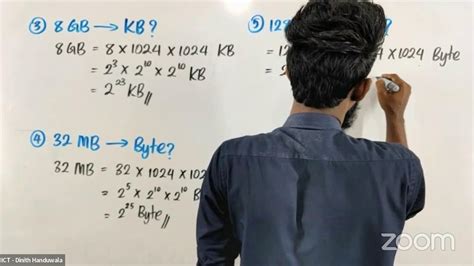 ③ 8 GB → KB?
8 GB = 8 × 1024 × 1024 KB
= 2³ × 2¹⁰ × 2¹⁰ KB
= 2²³ KB //
④ 32 MB → Byte?
32 MB = 32 × 1024 × 102
= 2⁵ × 2¹⁰ × 2¹⁰ B
= 2²⁵ Byte //
⑤ 128 ?
= 12 × 1024 Byte
= 2
zoom
ICT - Dinith Handuwala